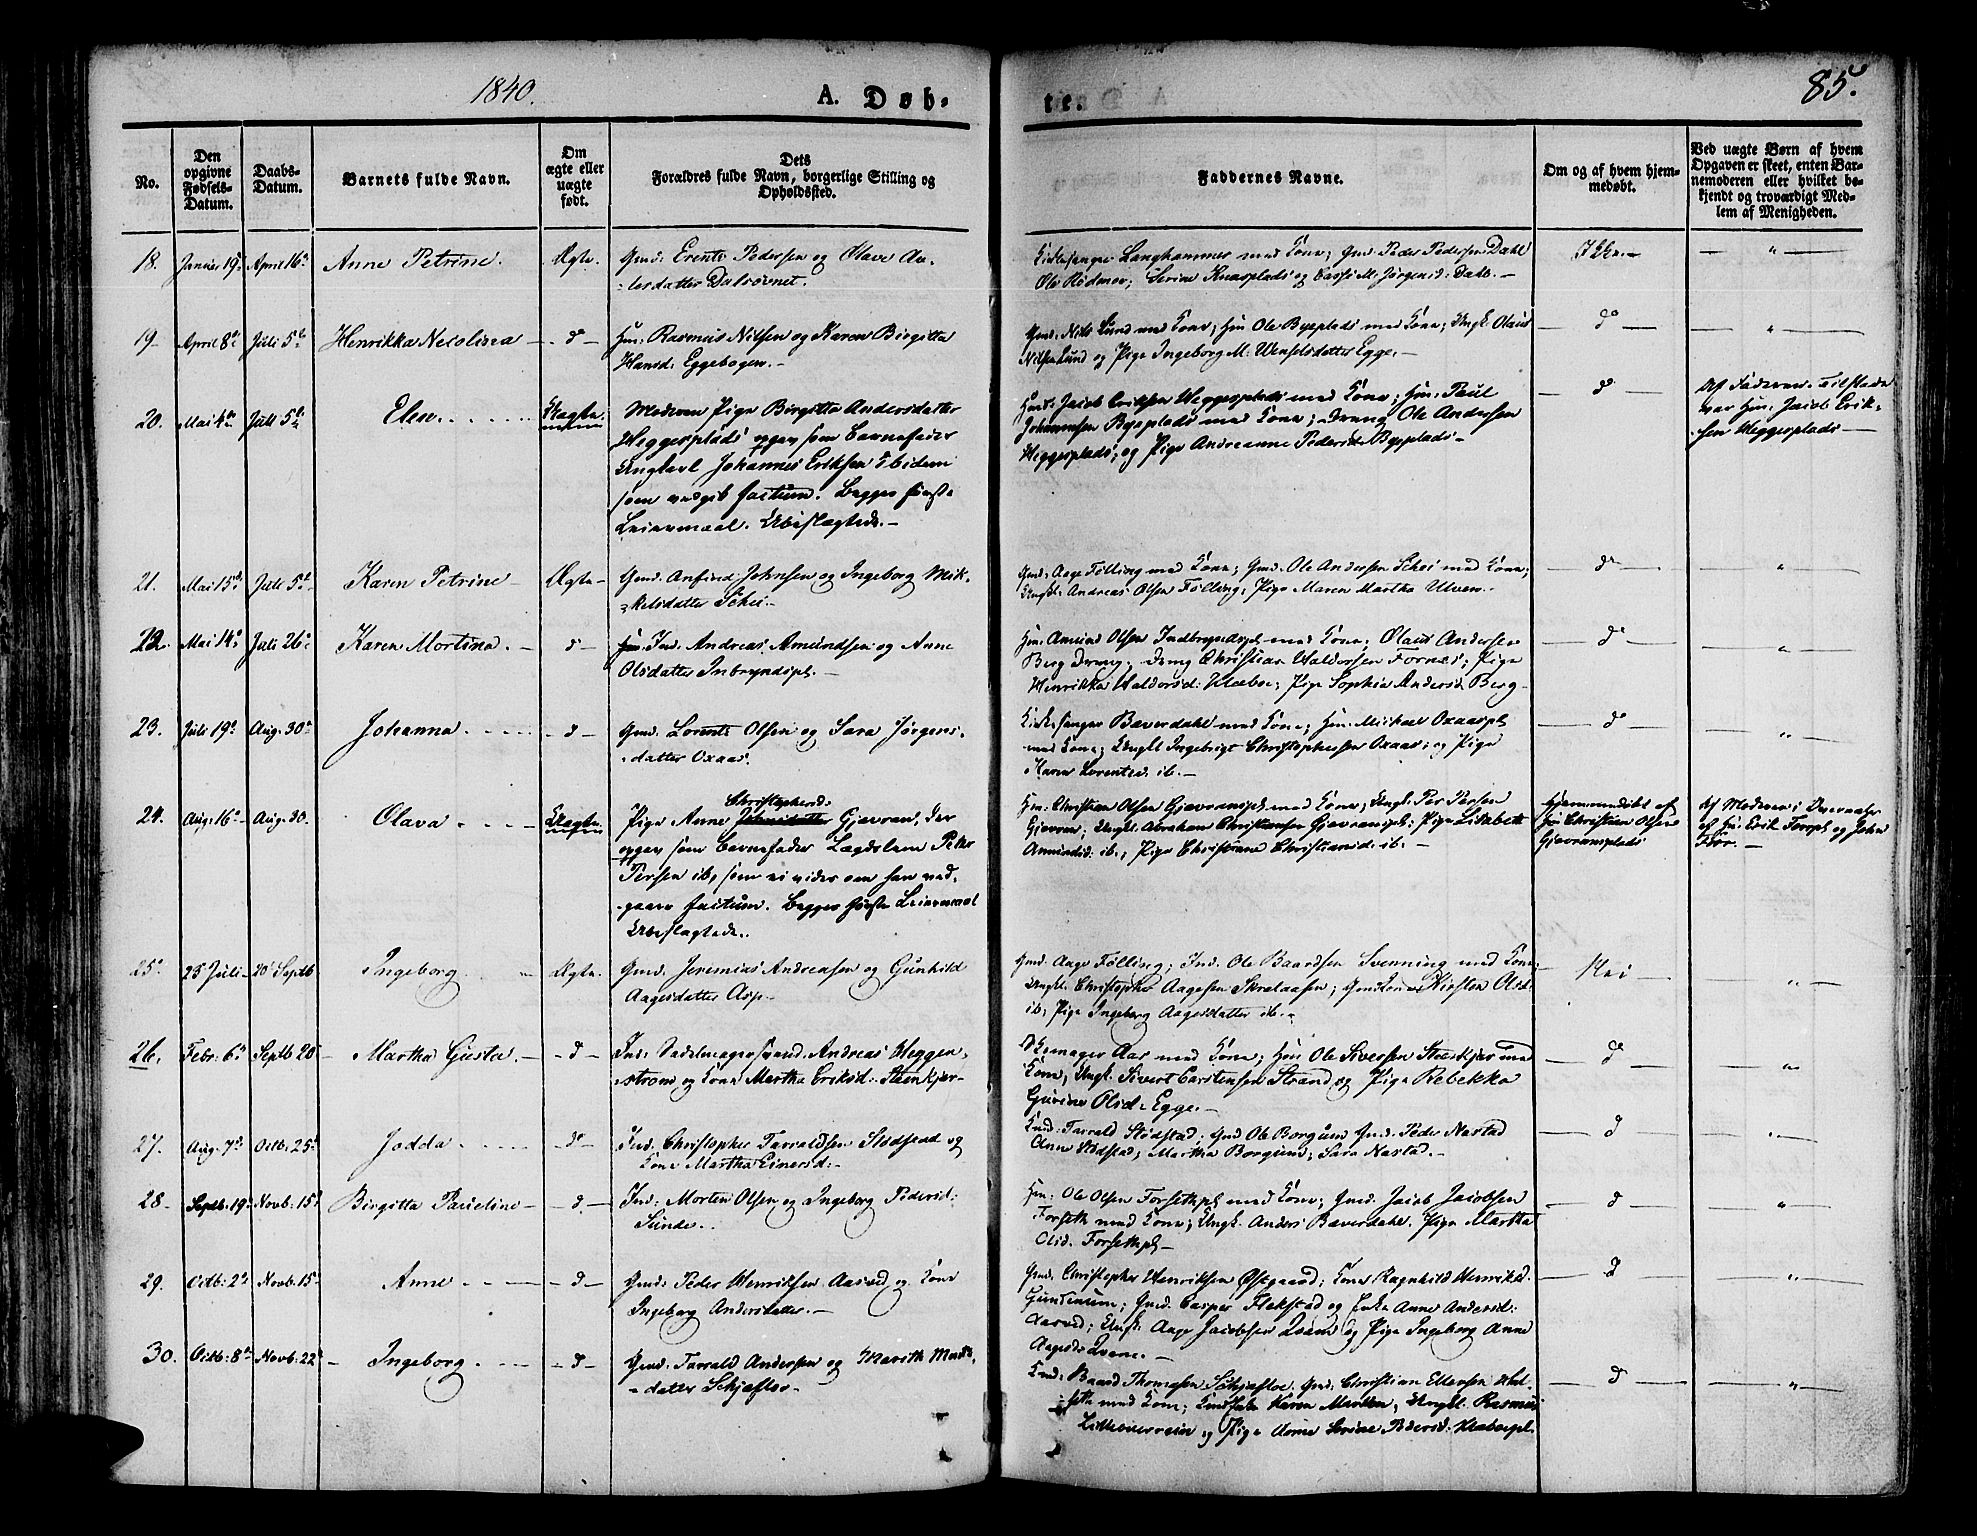 1840.
A. Døb-
te.
85.
No.
Den opgivne Fødsels-Datum.
Daabs-Datum.
Barnets fulde Navn.
Om ægte eller uægte født.
Dets Forældres fulde Navn, borgerlige Stilling og Opholdssted.
Faddernes Navne.
Om og af hvem hjem-
medøbt.
Ved uægte Børn af hvem
Opgaven er skeet, enten Bar-
nemoderen eller hvilket be-
kjendt og troværdigt Med-
lem af Menigheden.
18. Januar 19. April 16. Anne Petrine. Ægte. Gmd. Erents Pedersen og Olave
Kirkesanger Langhammer med Kone; Gmd. Peder Pedersen Dahl
19. April 8. Juli 5. Henrikka Nicolina d Hm. Rasmus Nilsen og Karen Birgitta
Hansd. Eggebogen.
Gmd. Nils Lund med Kone; Hm. Ole Byeplads med Kone; Ungk. Olaus
Nilsen Lund og Pige Ingeborg M. Wenselsdatter Egge.
20. Mai 4. Juli 5. Elen. Uægte. Moderen Pige Birgitta Andersdatter
Heggesplads opgav som Barnefader
Ungkarl Johannes Eriksen ibidem
som vedgik factum. Begges første
Leiermaal. Ubeslægtede.
Hmd. Jacob Eriksen Heggesplads med Kone; Hm. Paul
Johannesen Byeplads med Kone; Dreng Ole Andersen
Heggesplads; og Pige Andreanne Pedersd. Byeplads
Af Faderen. Tilstede
var Hm. Jacob Erik-
sen Heggesplads
21. Mai 15. Juli 5. Karen Petrine Ægte Gmd. Anfind Johnsen og Ingeborg Mik-
kelsdatter Schei.
Gmd. Aage Følling med Kone; Gmd. Ole Andersen Schei med Kone;
Ungk. Andreas Olsen Følling; Pige Maren Martha Ulven.
22. Mai 14. Juli 26. Karen Mortina. d Ind. Andreas Amundsen og Anne
Olsdatter Inbryndspl.
Hm. Amund Olsen Indbryndspl. med Kone; Olaus Andersen
Berg Dreng; Dreng Christian Haldorsen Fornes; Pige
Henrikka Haldorsd. Klæboe; Pige Sophia Andersd. Berg
23. Juli 19. Aug. 30. Johanna d Gmd. Lorents Olsen og Sara Jørgens-
datter Oxaas.
Kirkesanger Baverdahl med Kone; Hm. Michael Oxaaspl.
med Kone; Ungk. Ingebrigt Christophersen Oxaas; og Pige
Karen Lorentsd. ib.
24. Aug. 16. Aug. 30. Olava Uægte. Christophersd.
Pige Anne Gjævran, der
opgav som Barnefader Lægdslem Peter
Persen ib, som ei vides om han ved-
gaaer factum. Begges første Leiermaal
Ubeslægtede.
Hm. Christian Olsen Gjævranspl. med Kone; Ungk. Per Persen
Gjævran; Ungk. Abraham Christiansen Gjævranspl; Pige Lisbeth
Amundsd. ib.; Pige Christiane Christiansd. ib.
Hjemmedøbt af
Christian Olsen
Gjævransplads
Af Moderen i Overvær
af Hm. Erik Forrpl. og John
Forr.
25. 25 Juli 20 Septb Ingeborg Ægte. Gmd. Jeremias Andreasen og Gunhild
Aagesdatter Asp.
Gmd. Aage Følling; Ind. Ole Baardsen Svenning med Kone;
Ungk. Christopher Aagesen Skrataasen; Kirsten Olsd.
ib; Pige Ingeborg Aagesdatter ib.
Nei
26. Febr. 6. Septb 20 Martha Gusta. d Ind. Sadelmagersvend Andreas Heggen-
strøm og Kone Martha Eriksd. Steenkjær
Aas med Kone; Hm. Ole Siversen Steenkjær med
Kone, Ungk. Sivert Carstensen Strand og Pige Rebekka
Gurine Olsd. Egge.
27. Aug. 7. Octb. 25. Jodda d Ind. Christopher Tarraldsen Stødstad og
Kone Martha Einersd.
Gmd. Tarrald Stødstad; Gmd Ole Borgum Gmd. Peder Nastad
Anne Stødstad; Martha Borgum; Sara Nastad.
28. Septb. 19. Novb. 15. Birgitta Pauline d Ind. Morten Olsen og Ingeborg Pedersd.
Sunde.
Hm. Ole Olsen Forsethpl. med Kone; Gmd. Jacob Jacobsen
Forseth med Kone; Ungk. Anders Baverdahl. Pige Martha
Olsd. Forsethpl.
29. Octb. 2. Novb. 15. Anne d Gmd. Peder Henriksen Aasved og Kone
Ingeborg Andersdatter.
Gmd. Christopher Henriksen Østgaard; Kone Ragnhild Henriksd.
Gundenum; Gmd. Casper Flekstad og Enke Anne Andersd.
Aasved; Ungk. Aage Jacobsen Qvam og Pige Ingeborg Anne
Aagesd. Qvam.
30. Octb. 8. Novb. 22. Ingeborg d Gmd. Tarrald Andersen og Marith
datter Schjefloe
Gmd. Baard Thomesen Schjefloe. Gmd. Christian Ellevsen
med Kone; Karen Marthea, Ungk. Rasmus
og Pige Anne Serine Pedersd.